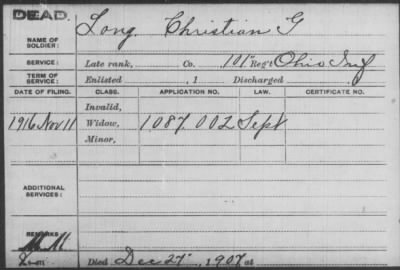 DEAD.
NAME OF SOLDIER: Long Christian G
SERVICE: Late rank, Co. 101" Reg't Ohio Inf
TERM OF SERVICE: Enlisted , 1 Discharged , 1
DATE OF FILING. CLASS. APPLICATION NO. LAW. CERTIFICATE NO.
Invalid,
1916 Nov 11 Widow, 1087.002 Sept
Minor,
ADDITIONAL SERVICES:
REMARKS
Died Dec 27", 1907 at